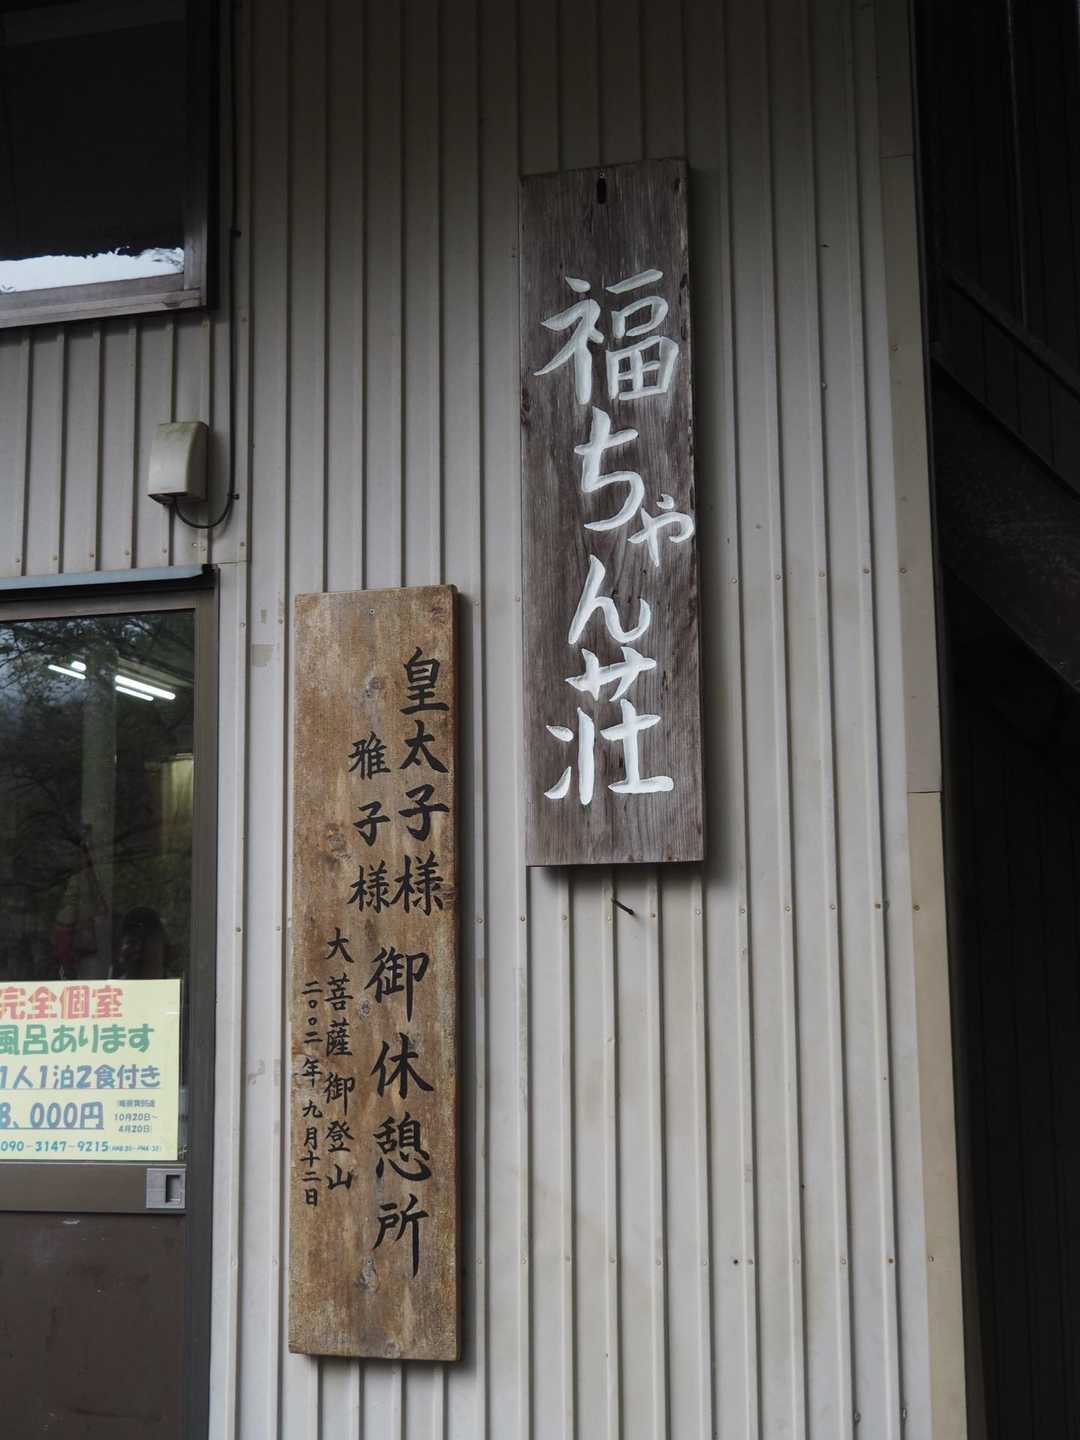 福ちゃん荘
皇太子様
雅子様
御休憩所
大菩薩御登山
二〇〇二年九月十二日
完全個室
風呂あります
1人1泊2食付き
8,000円
10月20日~
4月20日)
090-3147-9215